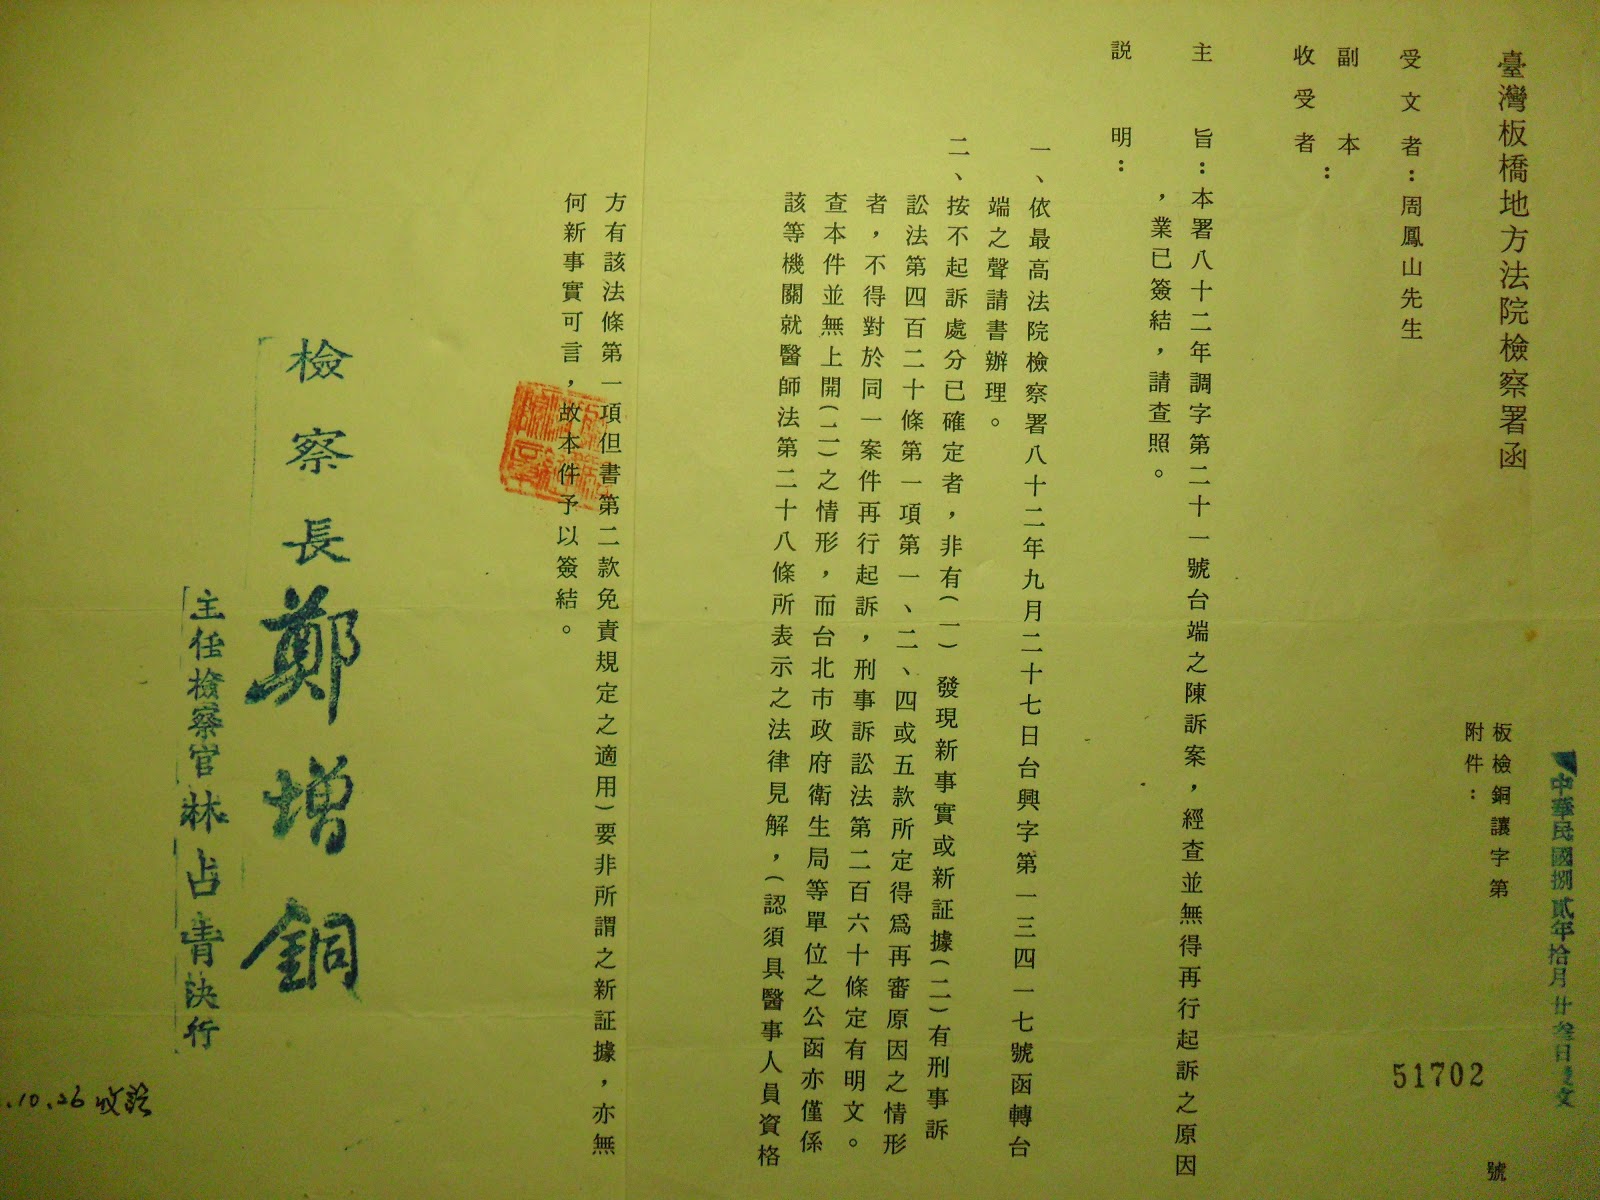 臺灣板橋地方法院檢察署函
中華民國捌貳年拾月廿叁日發文
板檢銅讓字第
51702
號
附件：
受文者：周鳳山先生
副本
收受者：
主旨：本署八十二年調字第二十一號台端之陳訴案，經查並無得再行起訴之原因
，業已簽結，請查照。
説明：
一、依最高法院檢察署八十二年九月二十七日台興字第一三四一七號函轉台
端之聲請書辦理。
二、按不起訴處分已確定者，非有(一)發現新事實或新証據(二)有刑事訴
訟法第四百二十條第一項第一、二、四或五款所定得爲再審原因之情形
者，不得對於同一案件再行起訴，刑事訴訟法第二百六十條定有明文。
查本件並無上開(二)之情形，而台北市政府衛生局等單位之公函亦僅係
該等機關就醫師法第二十八條所表示之法律見解，(認須具醫事人員資格
方有該法條第一項但書第二款免責規定之適用)要非所謂之新証據，亦無
何新事實可言，故本件予以簽結。
檢察長鄭增銅
主任檢察官林占青決行
.10.26收